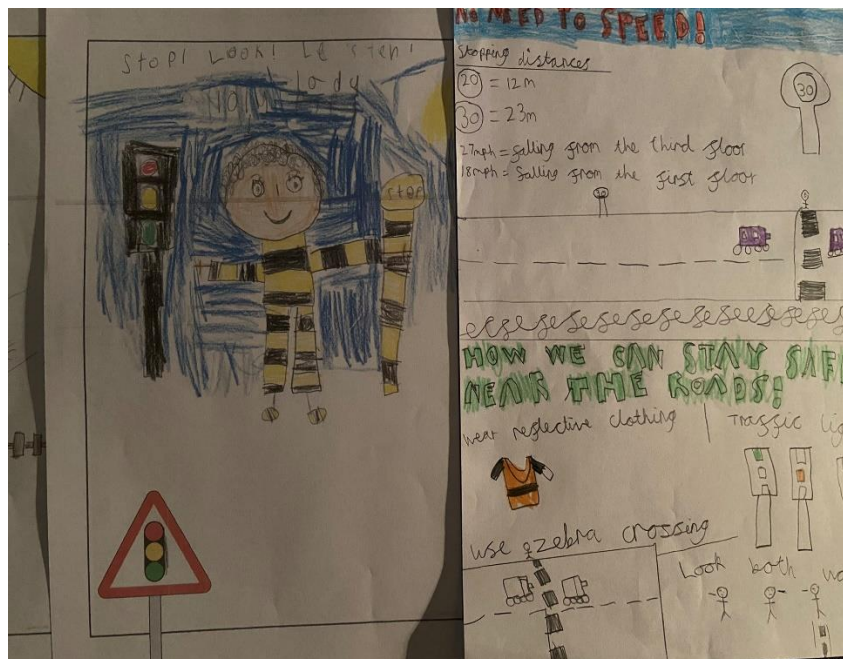 Stop! Look! Le sten!
lady
stop
NO NEED TO SPEED!
Stopping distances
20 = 12m
30 = 23m
27mph = falling from the third floor
18mph = falling from the first floor
30
30
HOW WE CAN STAY SAF
NEAR THE ROADS!
wear reflective clothing
Traffic lig
use zebra crossing
Look both wa